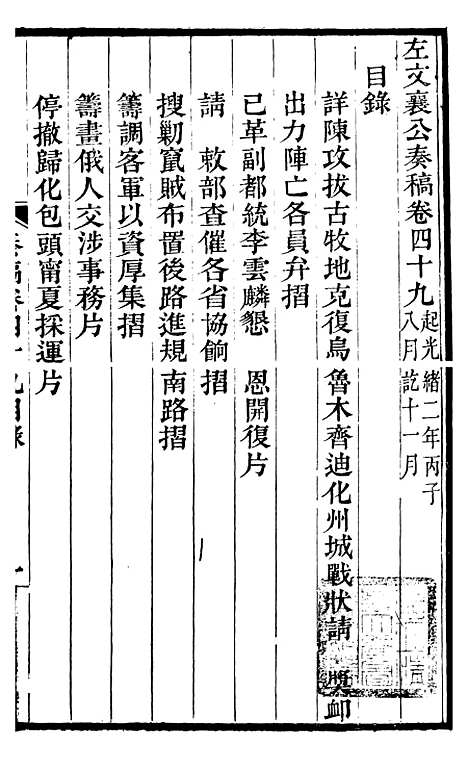 左文襄公奏稿卷四十九起光緒二年丙子八月訖十一月
目錄
詳陳攻拔古牧地克復烏魯木齊迪化州城戰狀請 獎卹
出力陣亡各員弁摺
已革副都統李雲麟懇 恩開復片
請 敕部查催各省協餉摺
搜勦竄賊布置後路進規南路摺
籌調客軍以資厚集摺
籌畫俄人交涉事務片
停撤歸化包頭甯夏採運片
奏稿卷四十九目錄 一